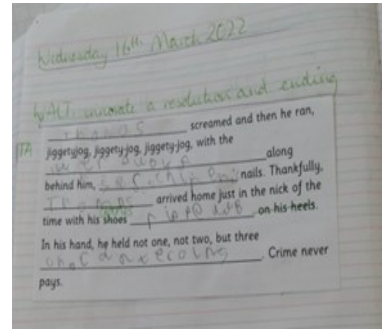 Wednesday 16th March 2022
WALT: innovate a resolution and ending
TA
Thomas screamed and then he ran,
jiggetyjog, jiggety-jog, jiggety-jog, with the
along
behind him, nails. Thankfully,
Thomas arrived home just in the nick of the
time with his shoes on his heels.
In his hand, he held not one, not two, but three
. Crime never
pays.